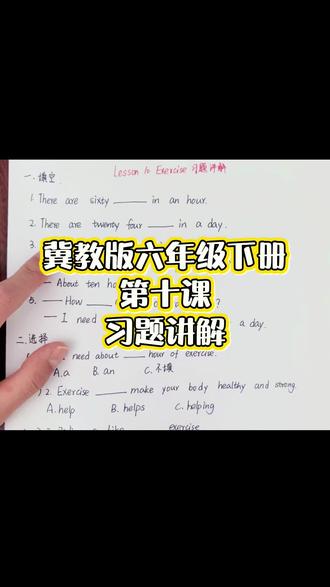 Lesson 10 Exercise 习题讲解
一、填空.
1. There are sixty ____ in an hour.
2. There are twenty four ____ in a day.
3.
冀教版六年级下册
第十课
习题讲解
— About ten ho
5. — How ?
— I need a day.
二.选择
need about ____ hour of exercise.
A. a B. an C. 不填
) 2. Exercise ____ make your body healthy and strong.
A. help B. helps C. helping
exercise